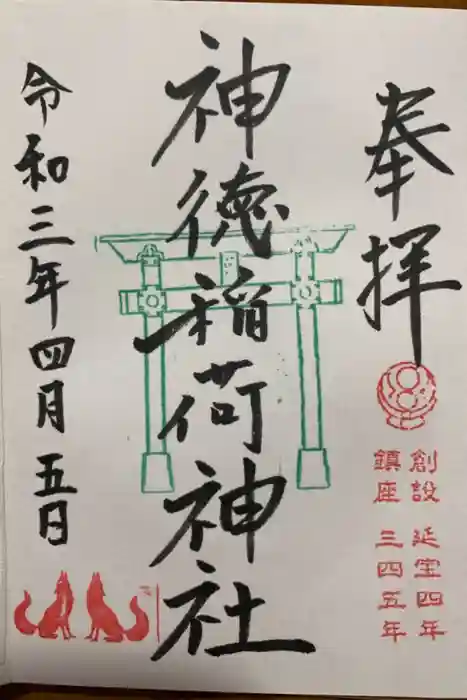 奉拝
創設 延宝四年
鎮座 三四五年
神徳稲荷神社
令和三年四月五日